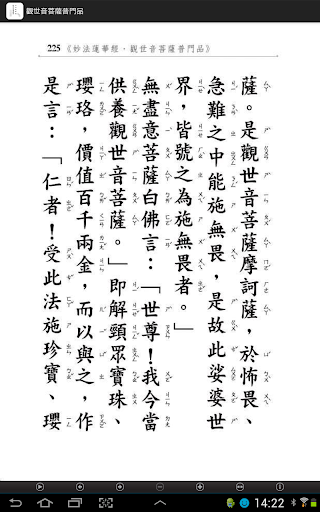 觀世音菩薩普門品
225《妙法蓮華經·觀世音菩薩普門品》
薩。是觀世音菩薩摩訶薩,於怖畏、
急難之中能施無畏,是故此娑婆世
界,皆號之為施無畏者。」
無盡意菩薩白佛言:「世尊!我今當
供養觀世音菩薩。」即解頸眾寶珠、
瓔珞,價值百千兩金,而以與之,作
是言:「仁者!受此法施珍寶、瓔
14:22